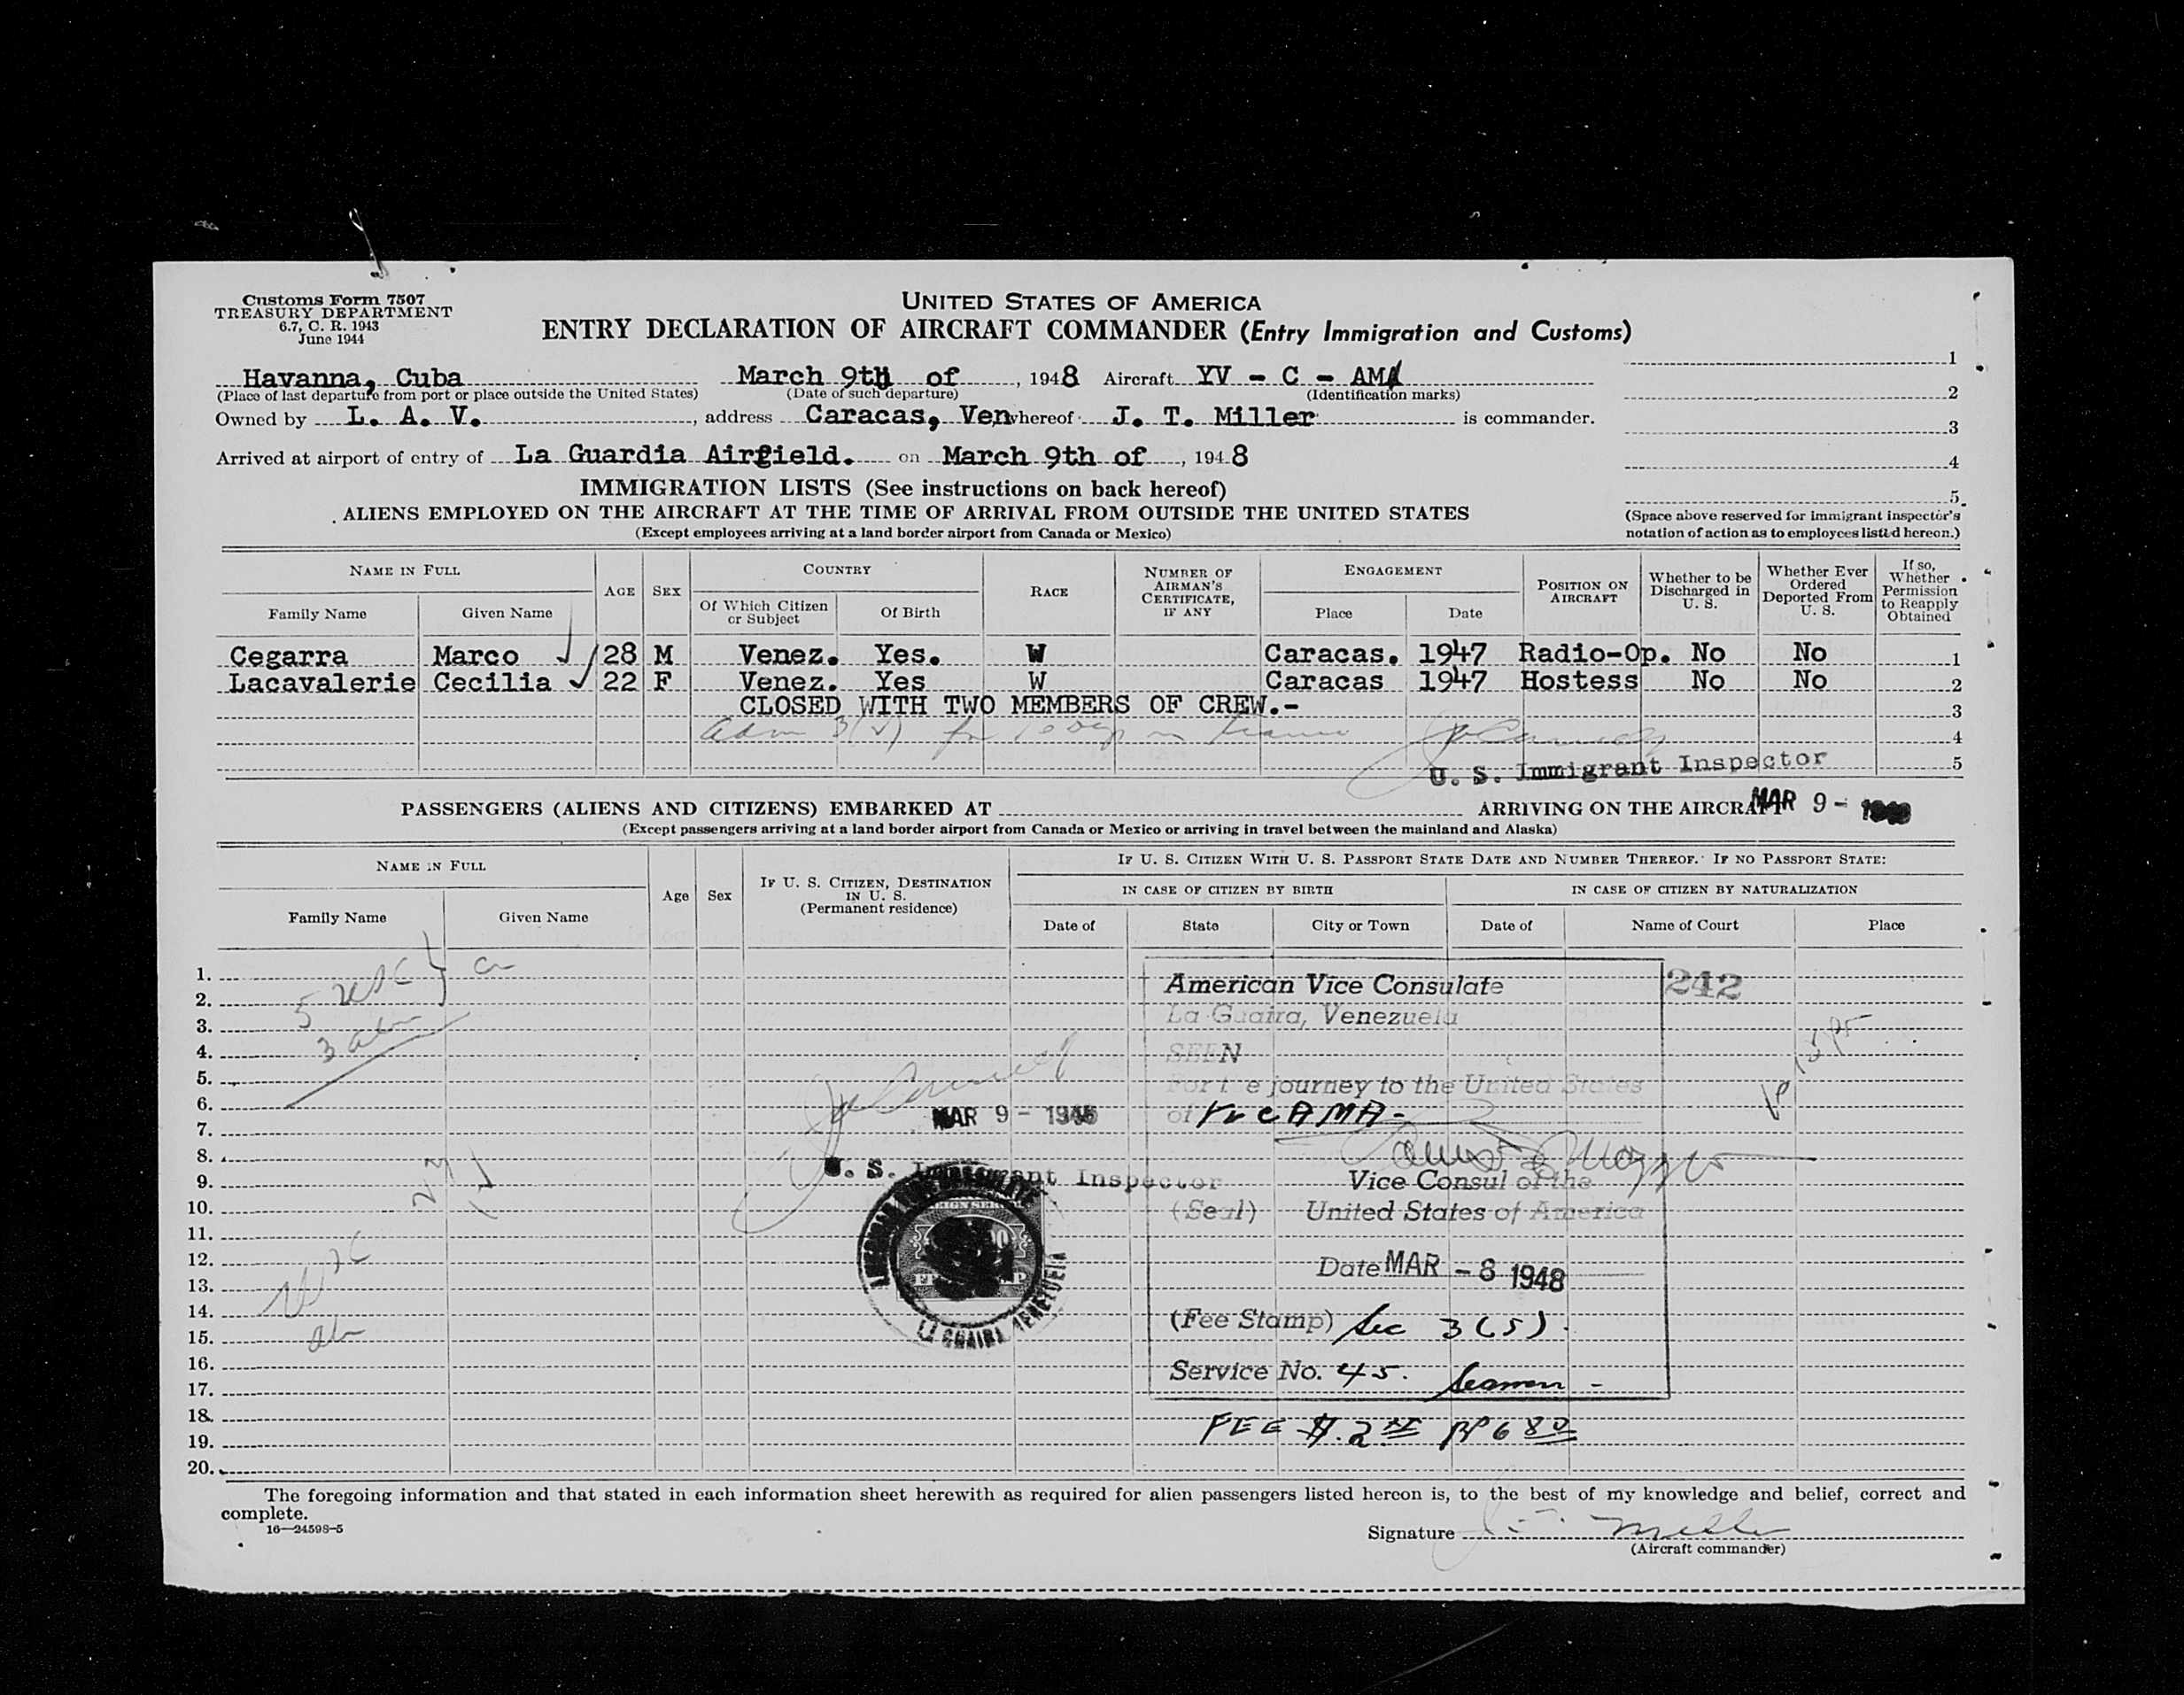 Customs Form 7507
TREASURY DEPARTMENT
6.7, C. R. 1943
June 1944
UNITED STATES OF AMERICA
ENTRY DECLARATION OF AIRCRAFT COMMANDER (Entry Immigration and Customs)
Havanna, Cuba March 9th of, 1948 Aircraft YV - C - AMA
(Place of last departure from port or place outside the United States) (Date of such departure) (Identification marks)
Owned by L. A. V., address Caracas, Ven whereof J. T. Miller is commander.
Arrived at airport of entry of La Guardia Airfield. on March 9th of, 1948
1
2
3
4
5
(Space above reserved for immigrant inspector's
notation of action as to employees listed hereon.)
IMMIGRATION LISTS (See instructions on back hereof)
ALIENS EMPLOYED ON THE AIRCRAFT AT THE TIME OF ARRIVAL FROM OUTSIDE THE UNITED STATES
(Except employees arriving at a land border airport from Canada or Mexico)
NAME IN FULL AGE SEX COUNTRY RACE NUMBER OF AIRMAN'S CERTIFICATE, IF ANY ENGAGEMENT POSITION ON AIRCRAFT Whether to be Discharged in U. S. Whether Ever Ordered Deported From U. S. If so, Whether Permission to Reapply Obtained
Family Name Given Name Of Which Citizen or Subject Of Birth Place Date
Cegarra Marco 28 M Venez. Yes. W Caracas. 1947 Radio-Op. No No 1
Lacavalerie Cecilia 22 F Venez. Yes W Caracas 1947 Hostess No No 2
CLOSED WITH TWO MEMBERS OF CREW.- 3
4
U. S. Immigrant Inspector 5
PASSENGERS (ALIENS AND CITIZENS) EMBARKED AT ARRIVING ON THE AIRCRAFT MAR 9 -
(Except passengers arriving at a land border airport from Canada or Mexico or arriving in travel between the mainland and Alaska)
NAME IN FULL Age Sex IF U. S. CITIZEN, DESTINATION IN U. S. (Permanent residence) IF U. S. CITIZEN WITH U. S. PASSPORT STATE DATE AND NUMBER THEREOF. IF NO PASSPORT STATE:
IN CASE OF CITIZEN BY BIRTH IN CASE OF CITIZEN BY NATURALIZATION
Family Name Given Name Date of State City or Town Date of Name of Court Place
1.
2.
3.
4.
5.
6.
7.
8.
9.
10.
11.
12.
13.
14.
15.
16.
17.
18.
19.
20.
5 USC
3 aln
MAR 9 - 1948
U. S. Immigrant Inspector
LA GUAIRA VENEZUELA
American Vice Consulate 242
La Guaira, Venezuela
SEEN
For the journey to the United States
of YV C AMA -
Vice Consul of the
(Seal) United States of America
Date MAR - 8 1948
(Fee Stamp) Sec 3(5).
Service No. 45. Seamen -
FEE $.2
The foregoing information and that stated in each information sheet herewith as required for alien passengers listed hereon is, to the best of my knowledge and belief, correct and
complete.
16—24598-5
Signature J. T. Miller
(Aircraft commander)